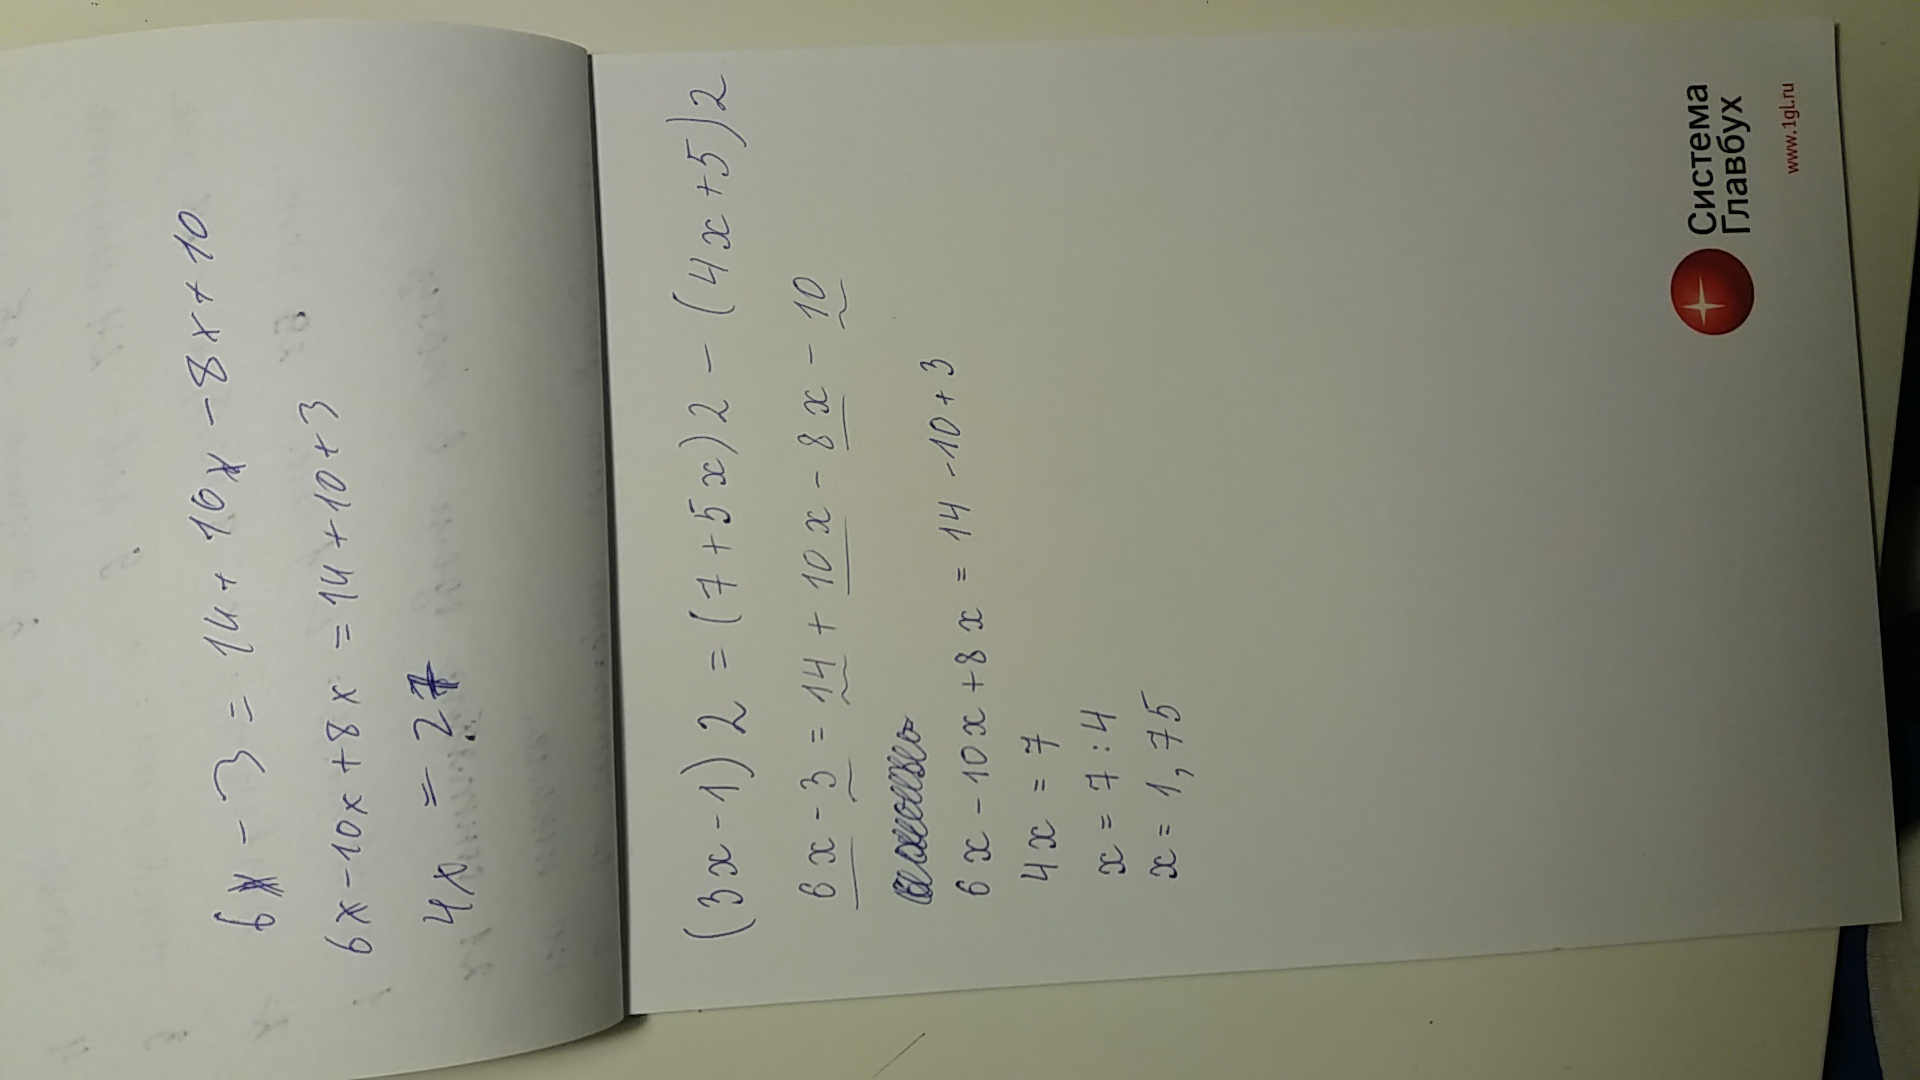 6x - 3 = 14 + 10x - 8x + 10
6x - 10x + 8x = 14 + 10 + 3
4x = 27
(3x - 1) 2 = (7 + 5x) 2 - (4x + 5) 2
6x - 3 = 14 + 10x - 8x - 10
6x - 10x + 8x = 14 - 10 + 3
4x = 7
x = 7 : 4
x = 1,75
Система
Главбух
www.1gl.ru